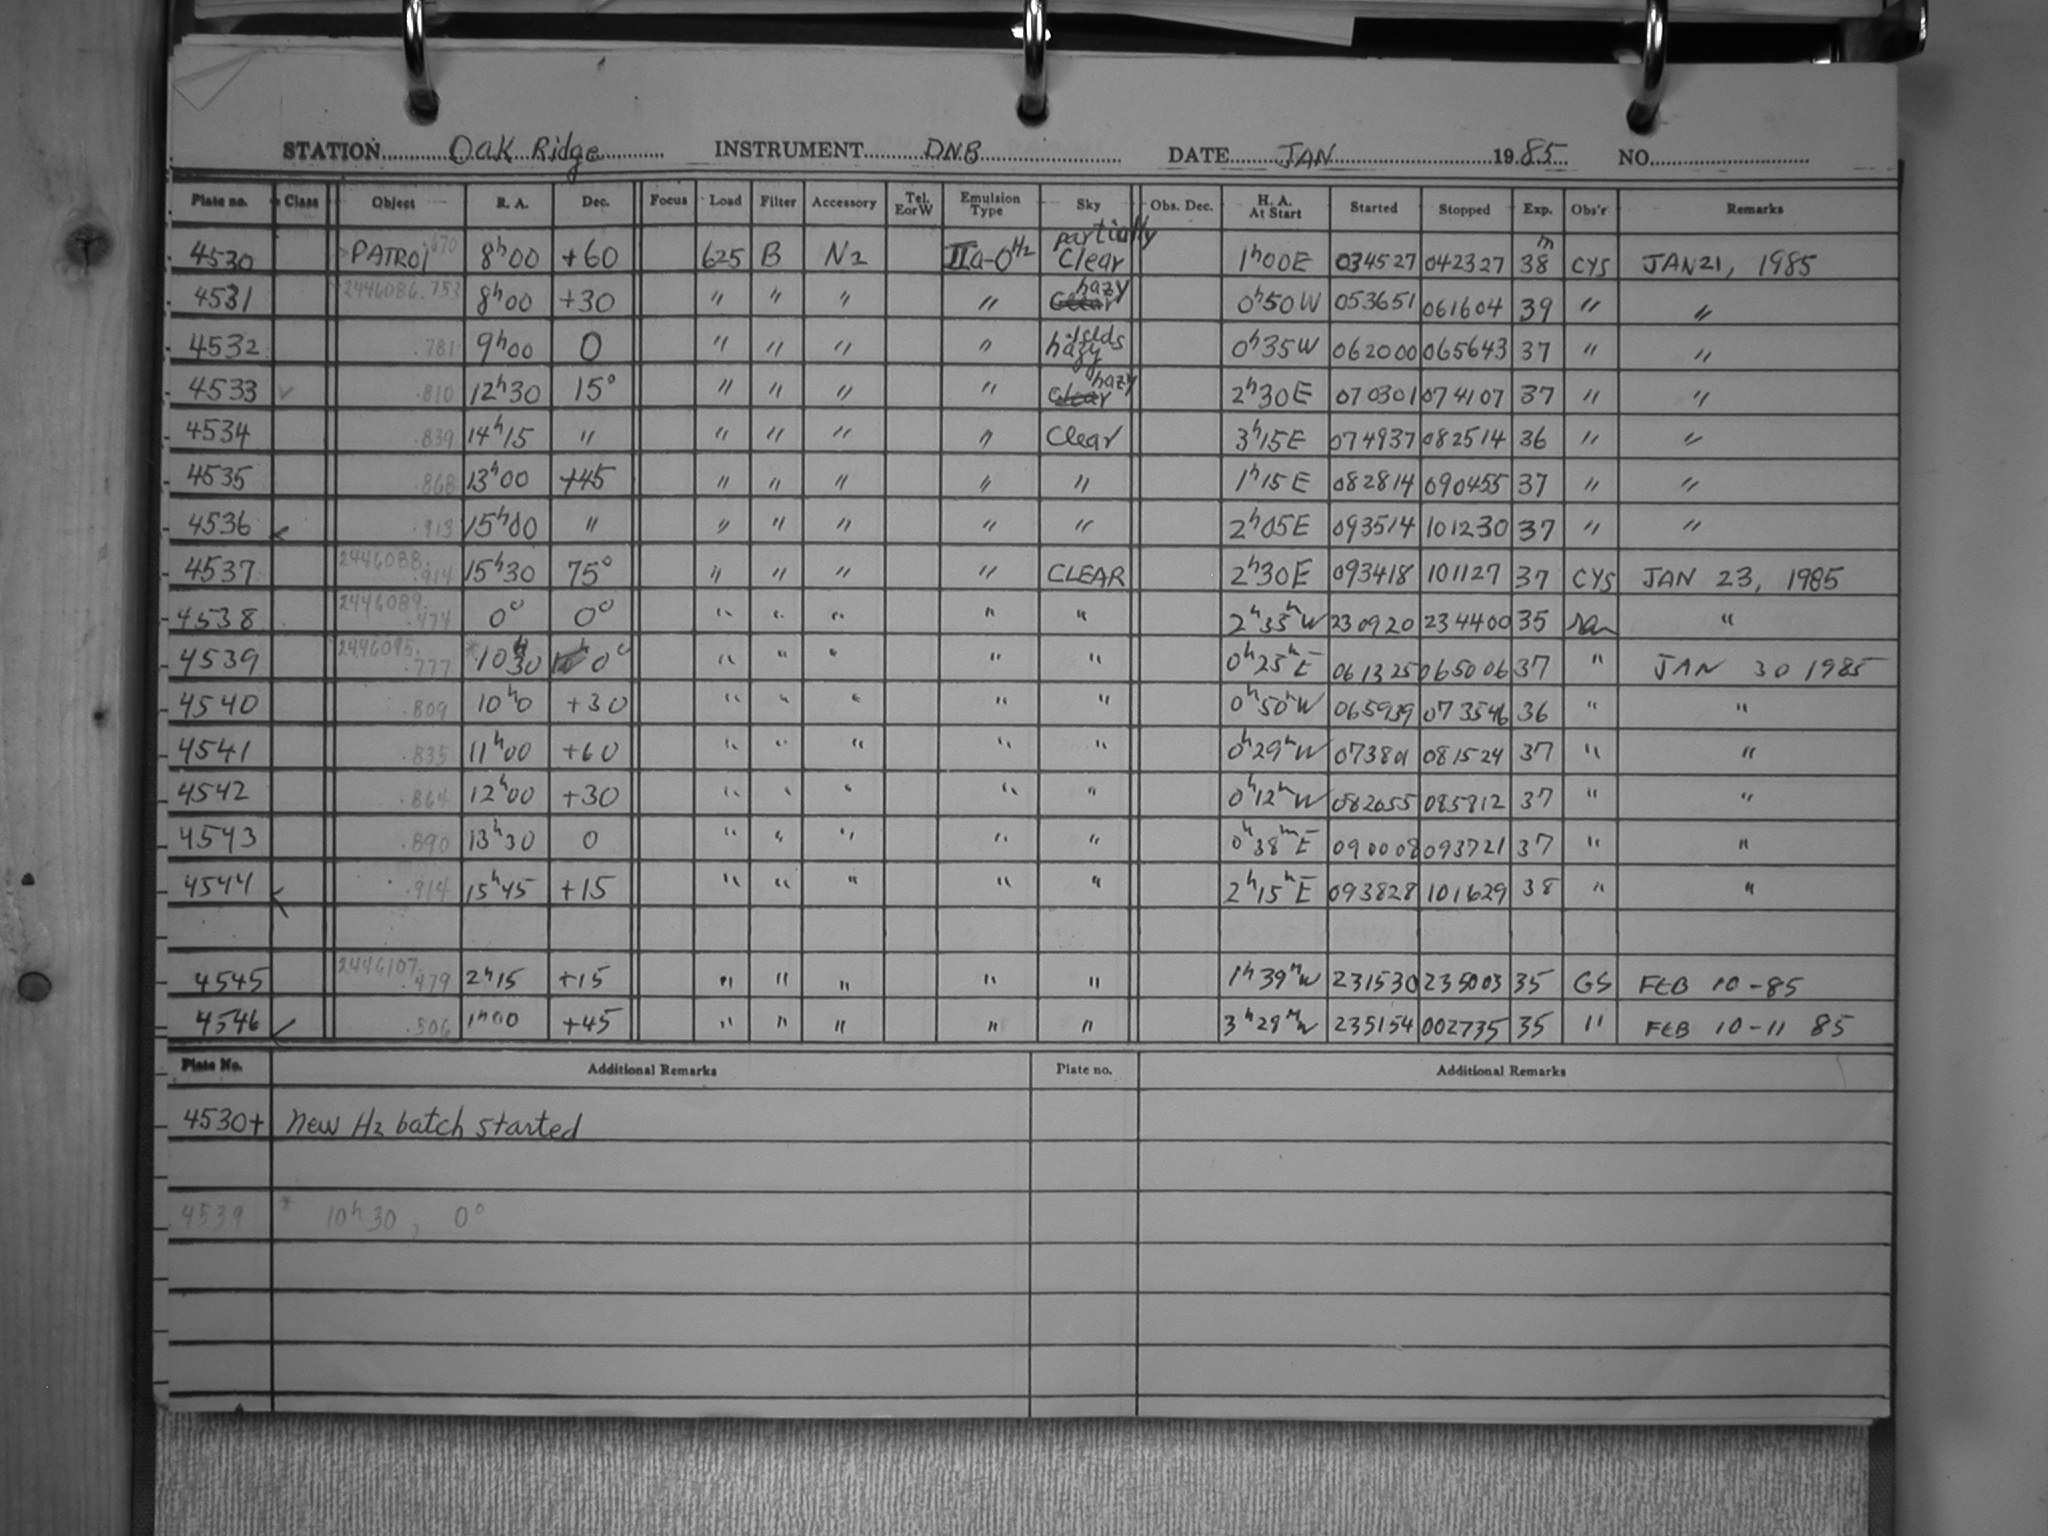 STATION Oak Ridge INSTRUMENT DNB DATE JAN 1985 NO.
Plate no. Class Object R. A. Dec. Focus Load Filter Accessory Tel. EorW Emulsion Type Sky Obs. Dec. H. A. At Start Started Stopped Exp. Obs'r Remarks
4530 PATROL .670 8h00 +60 625 B N2 IIa-O H2 partially Clear 1h00E 034527 042327 38m CYS JAN 21, 1985
4531 2446086.753 8h00 +30 " " " " hazy 0h50W 053651 061604 39 " "
4532 .781 9h00 0 " " " " hazy 0h35W 062000 065643 37 " "
4533 .810 12h30 15° " " " " hazy 2h30E 070301 074107 37 " "
4534 .839 14h15 " " " " " Clear 3h15E 074937 082514 36 " "
4535 .868 13h00 +45 " " " " " 1h15E 082814 090455 37 " "
4536 .913 15h00 " " " " " " 2h05E 093514 101230 37 " "
4537 2446088.914 15h30 75° " " " " CLEAR 2h30E 093418 101127 37 CYS JAN 23, 1985
4538 2446089.474 0° 0° " " " " " 2h35mW 230920 234400 35 "
4539 2446095.777 *10h30 0° " " " " " 0h25mE 061325 065006 37 " JAN 30 1985
4540 .809 10h0 +30 " " " " " 0h50mW 065939 073546 36 " "
4541 .835 11h00 +60 " " " " " 0h29mW 073801 081524 37 " "
4542 .864 12h00 +30 " " " " " 0h12mW 082055 085812 37 " "
4543 .890 13h30 0 " " " " " 0h38mE 090008 093721 37 " "
4544 .914 15h45 +15 " " " " " 2h15mE 093828 101629 38 " "
4545 2446107.479 2h15 +15 " " " " " 1h39mW 231530 235003 35 GS FEB 10-85
4546 .506 1h00 +45 " " " " " 3h29mW 235154 002735 35 " FEB 10-11 85
Plate No. Additional Remarks Plate no. Additional Remarks
4530+ New H2 batch started
4539 * 10h30, 0°